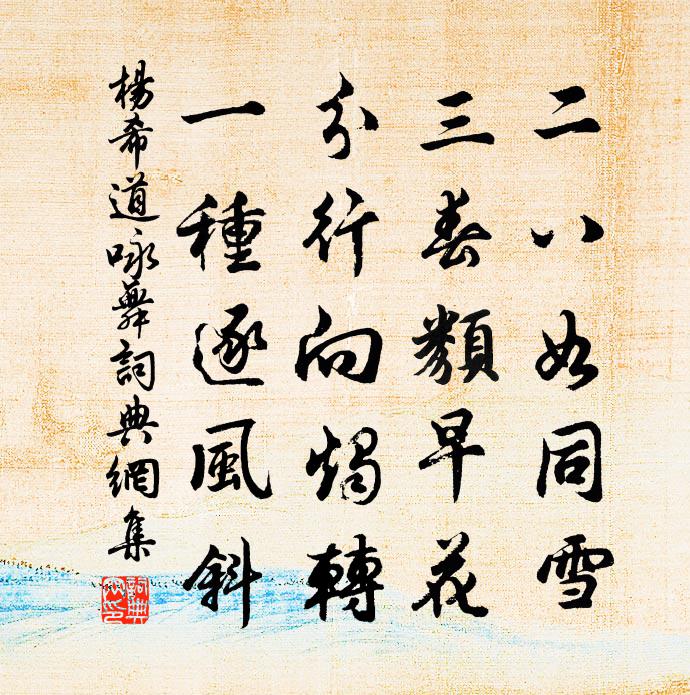 二八如同雪
三春類早花
分行向燭轉
一種逐風斜
楊希道咏舞詞典網集